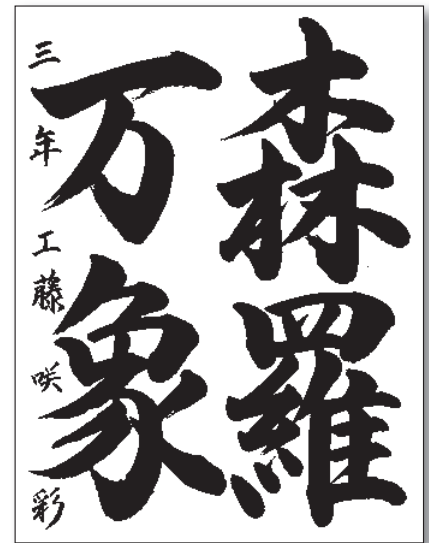 森羅
万象
三年 工藤咲彩